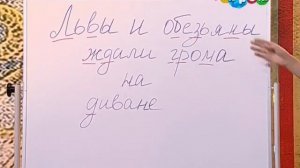 Львы и обезьяны
ждали грома
на
диване